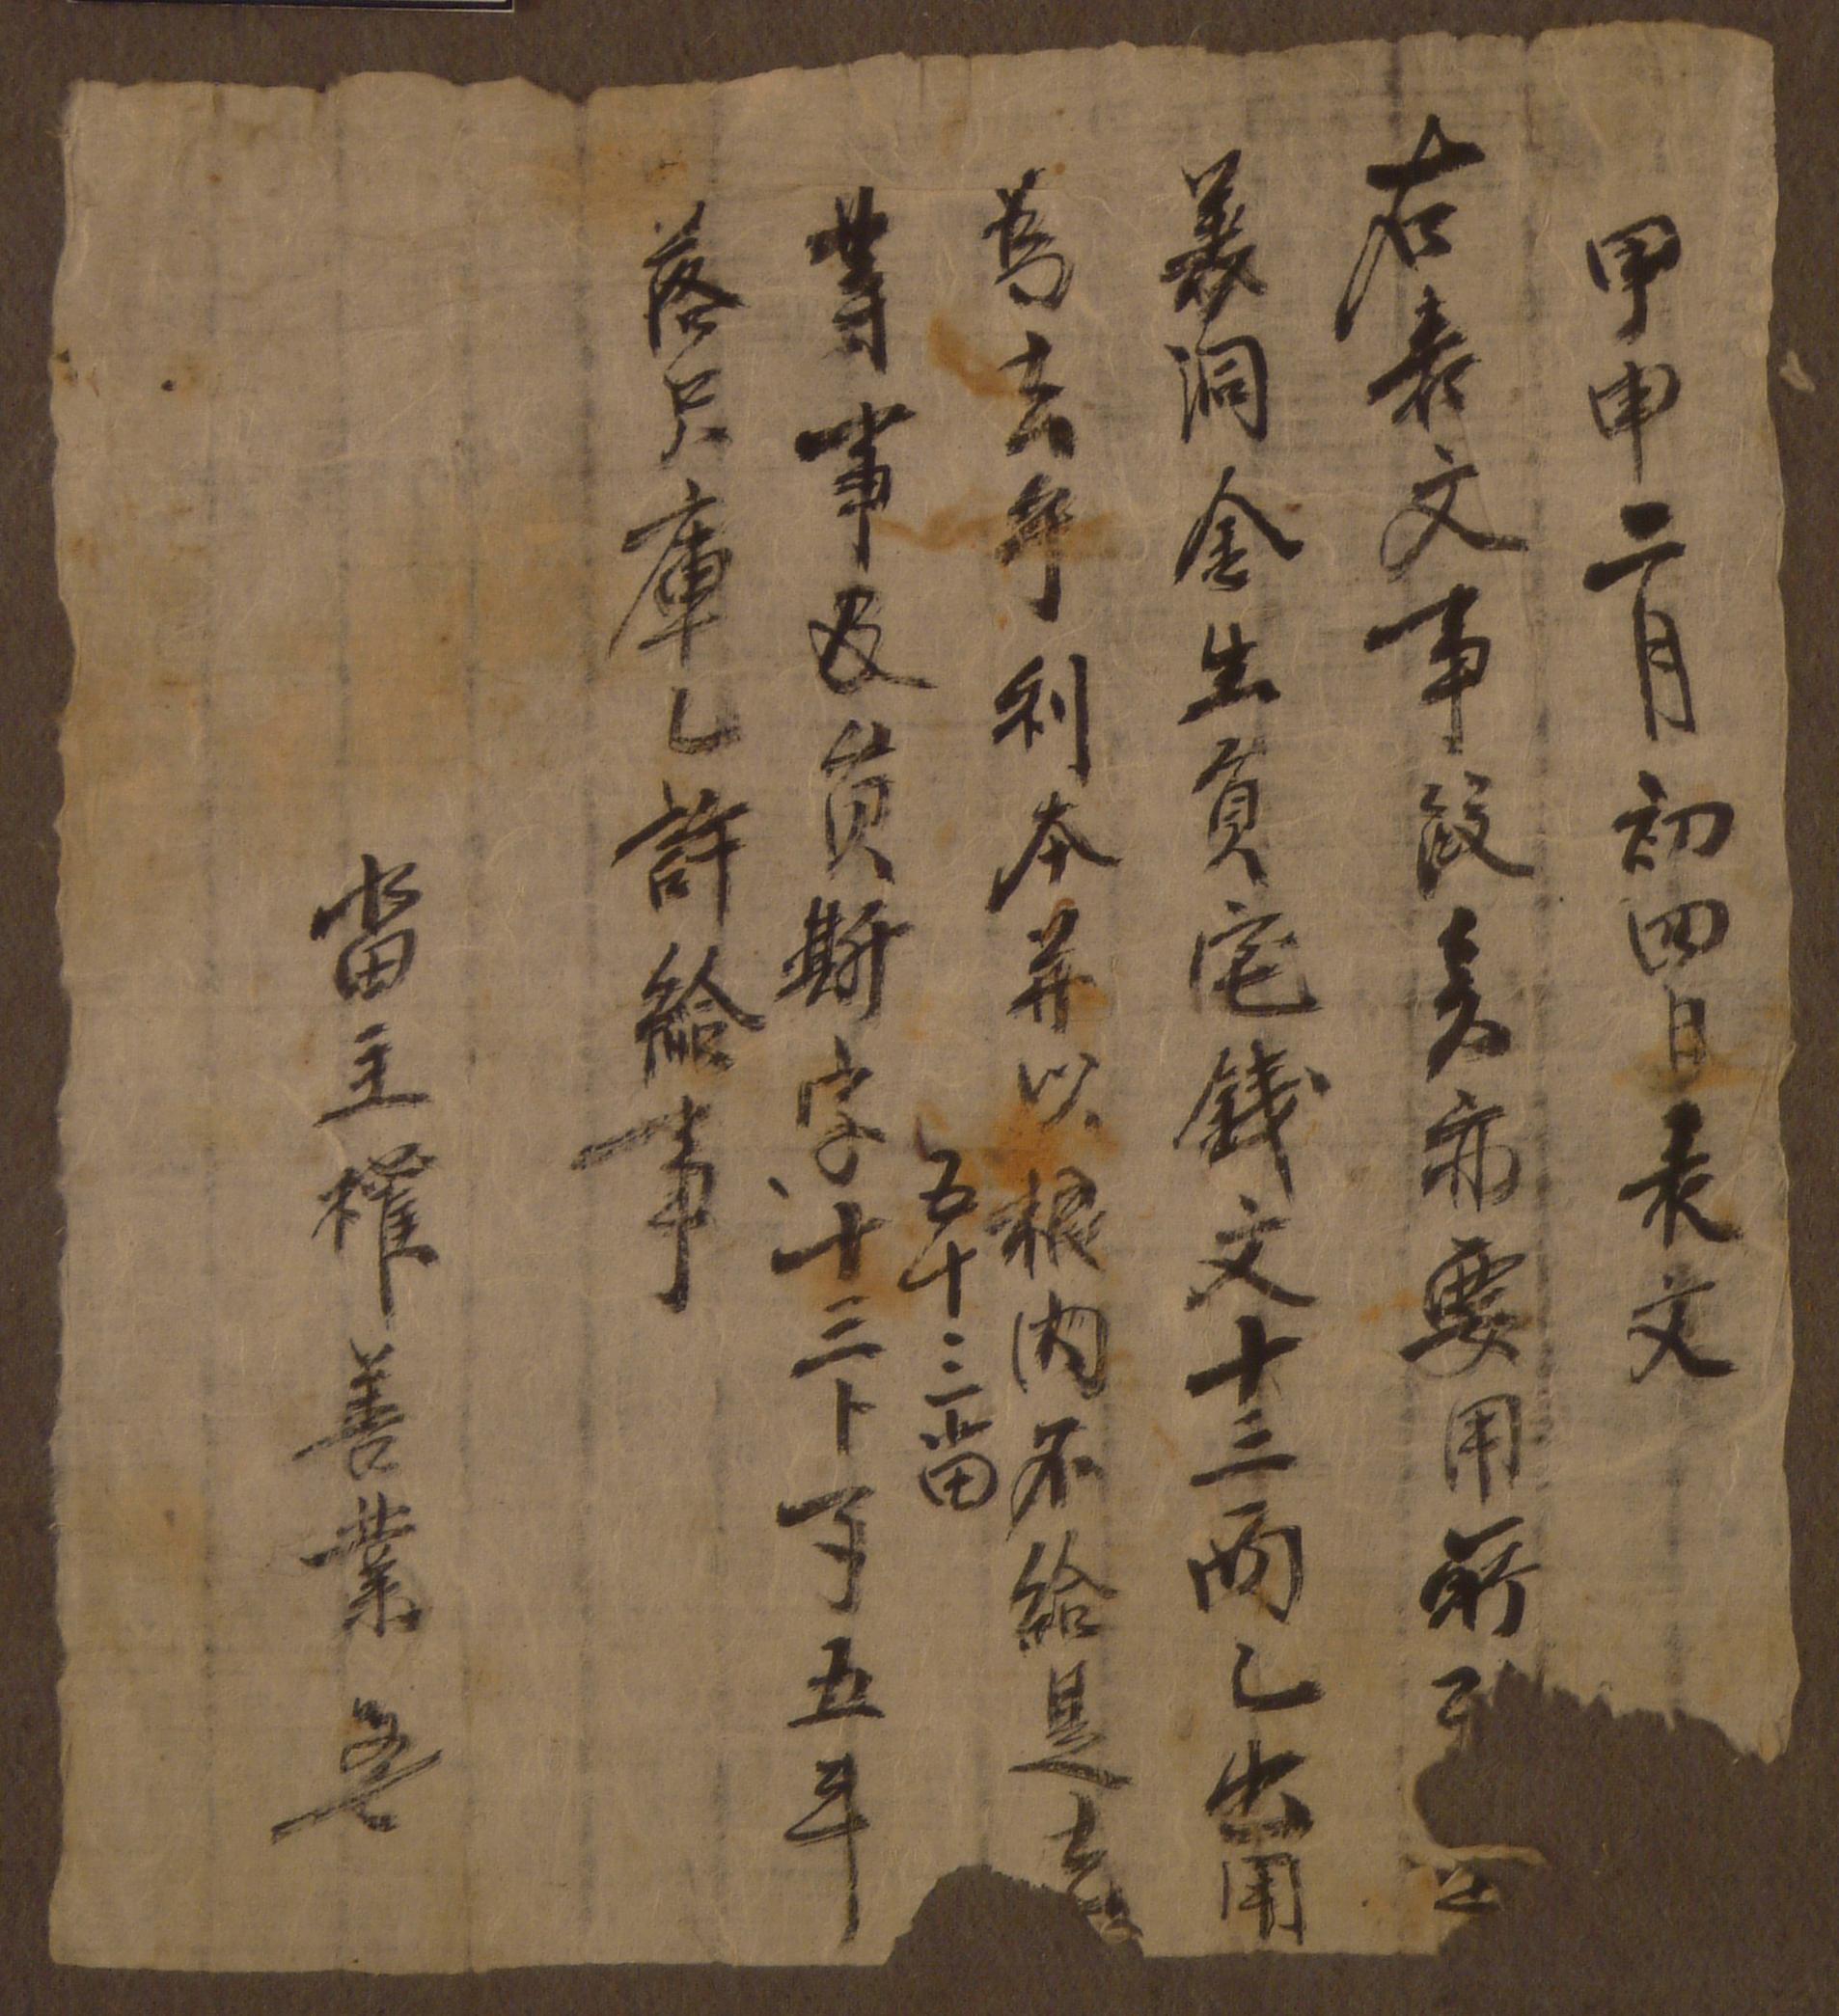 甲申二月初四日表文
右表文事段矣亦要用所
義洞金生員宅錢文十三兩乙出用
爲去乎利本幷以根內不給是去
等事及員斯字十三卜下五斗
五十三畓
落只庫乙許給事
畓主權善業